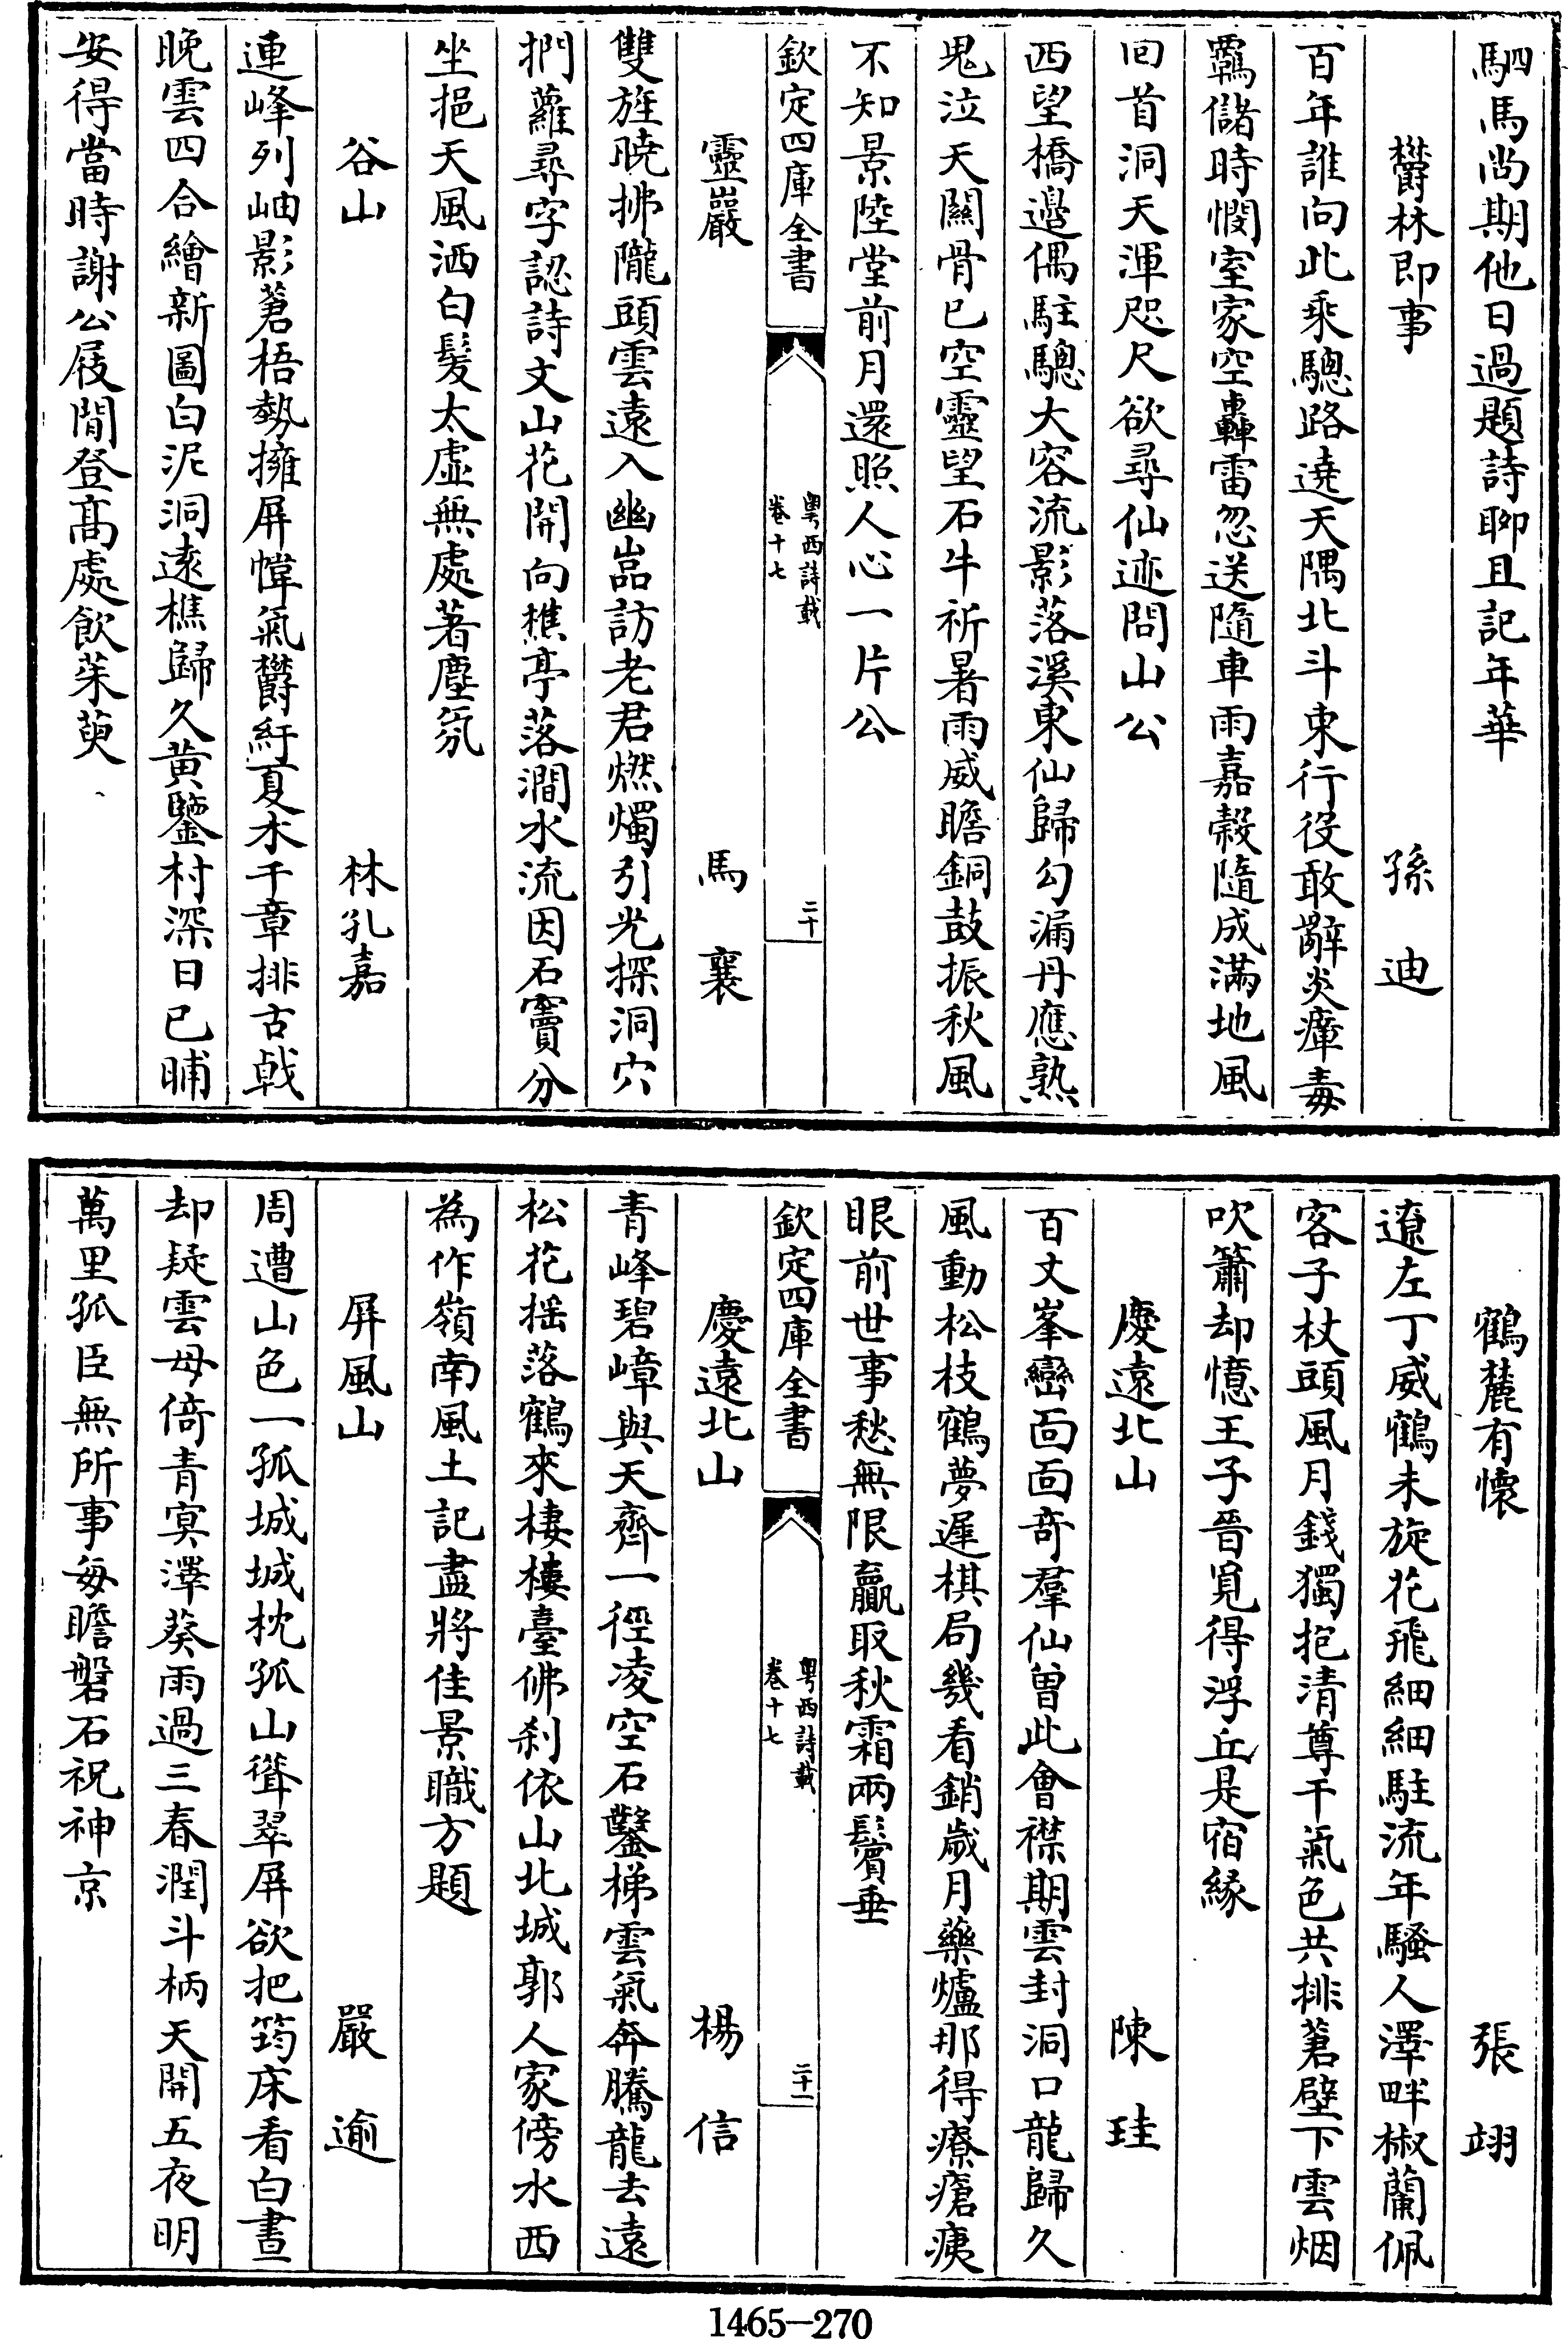 駟馬尚期他日過題詩聊且記年華
欝林即事　孫迪
百年誰向此乘驄路遶天隅北斗東行役敢辭炎瘴毒
羈儲時憫室家空轟雷忽送隨車雨嘉穀隨成滿地風
回首洞天渾咫尺欲尋仙迹問山公
西望橋邉偶駐驄大容流影落溪東仙歸勾漏丹應熟
鬼泣天關骨已空靈望石牛祈暑雨威瞻銅鼓振秋風
不知景陸堂前月還照人心一片公
欽定四庫全書　粤西詩載　卷十七　二十
靈巖　馬襄
雙旌曉拂隴頭雲遠入幽嵓訪老君燃燭引光探洞穴
捫蘿尋字認詩文山花開向樵亭落澗水流因石竇分
坐挹天風洒白髪太虛無處著塵氛
谷山　林孔嘉
連峰列岫影蒼梧勢擁屏幃氣欝紆夏木千章排古戟
晚雲四合繪新圖白泥洞遠樵歸久黄鑒村深日已晡
安得當時謝公屐閒登髙處飲茱萸
鶴麓有懷　張翊
遼左丁威鶴未旋花飛細細駐流年騷人澤畔椒蘭佩
客子杖頭風月錢獨抱清尊干氣色共排蒼壁下雲烟
吹簫却憶王子晉覓得浮丘是宿緣
慶遠北山　陳珪
百丈峯巒面面奇羣仙曽此會襟期雲封洞口龍歸久
風動松枝鶴夢遲棋局幾看銷歲月藥爐那得療瘡痍
眼前世事愁無限贏取秋霜兩鬢垂
欽定四庫全書　粤西詩載　卷十七　二十一
慶遠北山　楊信
青峰碧嶂與天齊一徑凌空石鑿梯雲氣奔騰龍去遠
松花揺落鶴來棲樓臺佛刹依山北城郭人家傍水西
為作嶺南風土記盡將佳景職方題
屏風山　嚴逾
周遭山色一孤城城枕孤山聳翠屏欲把筠床看白晝
却疑雲母倚青㝠澤葵雨過三春潤斗柄天開五夜明
萬里孤臣無所事每瞻磐石祝神京
1465—270